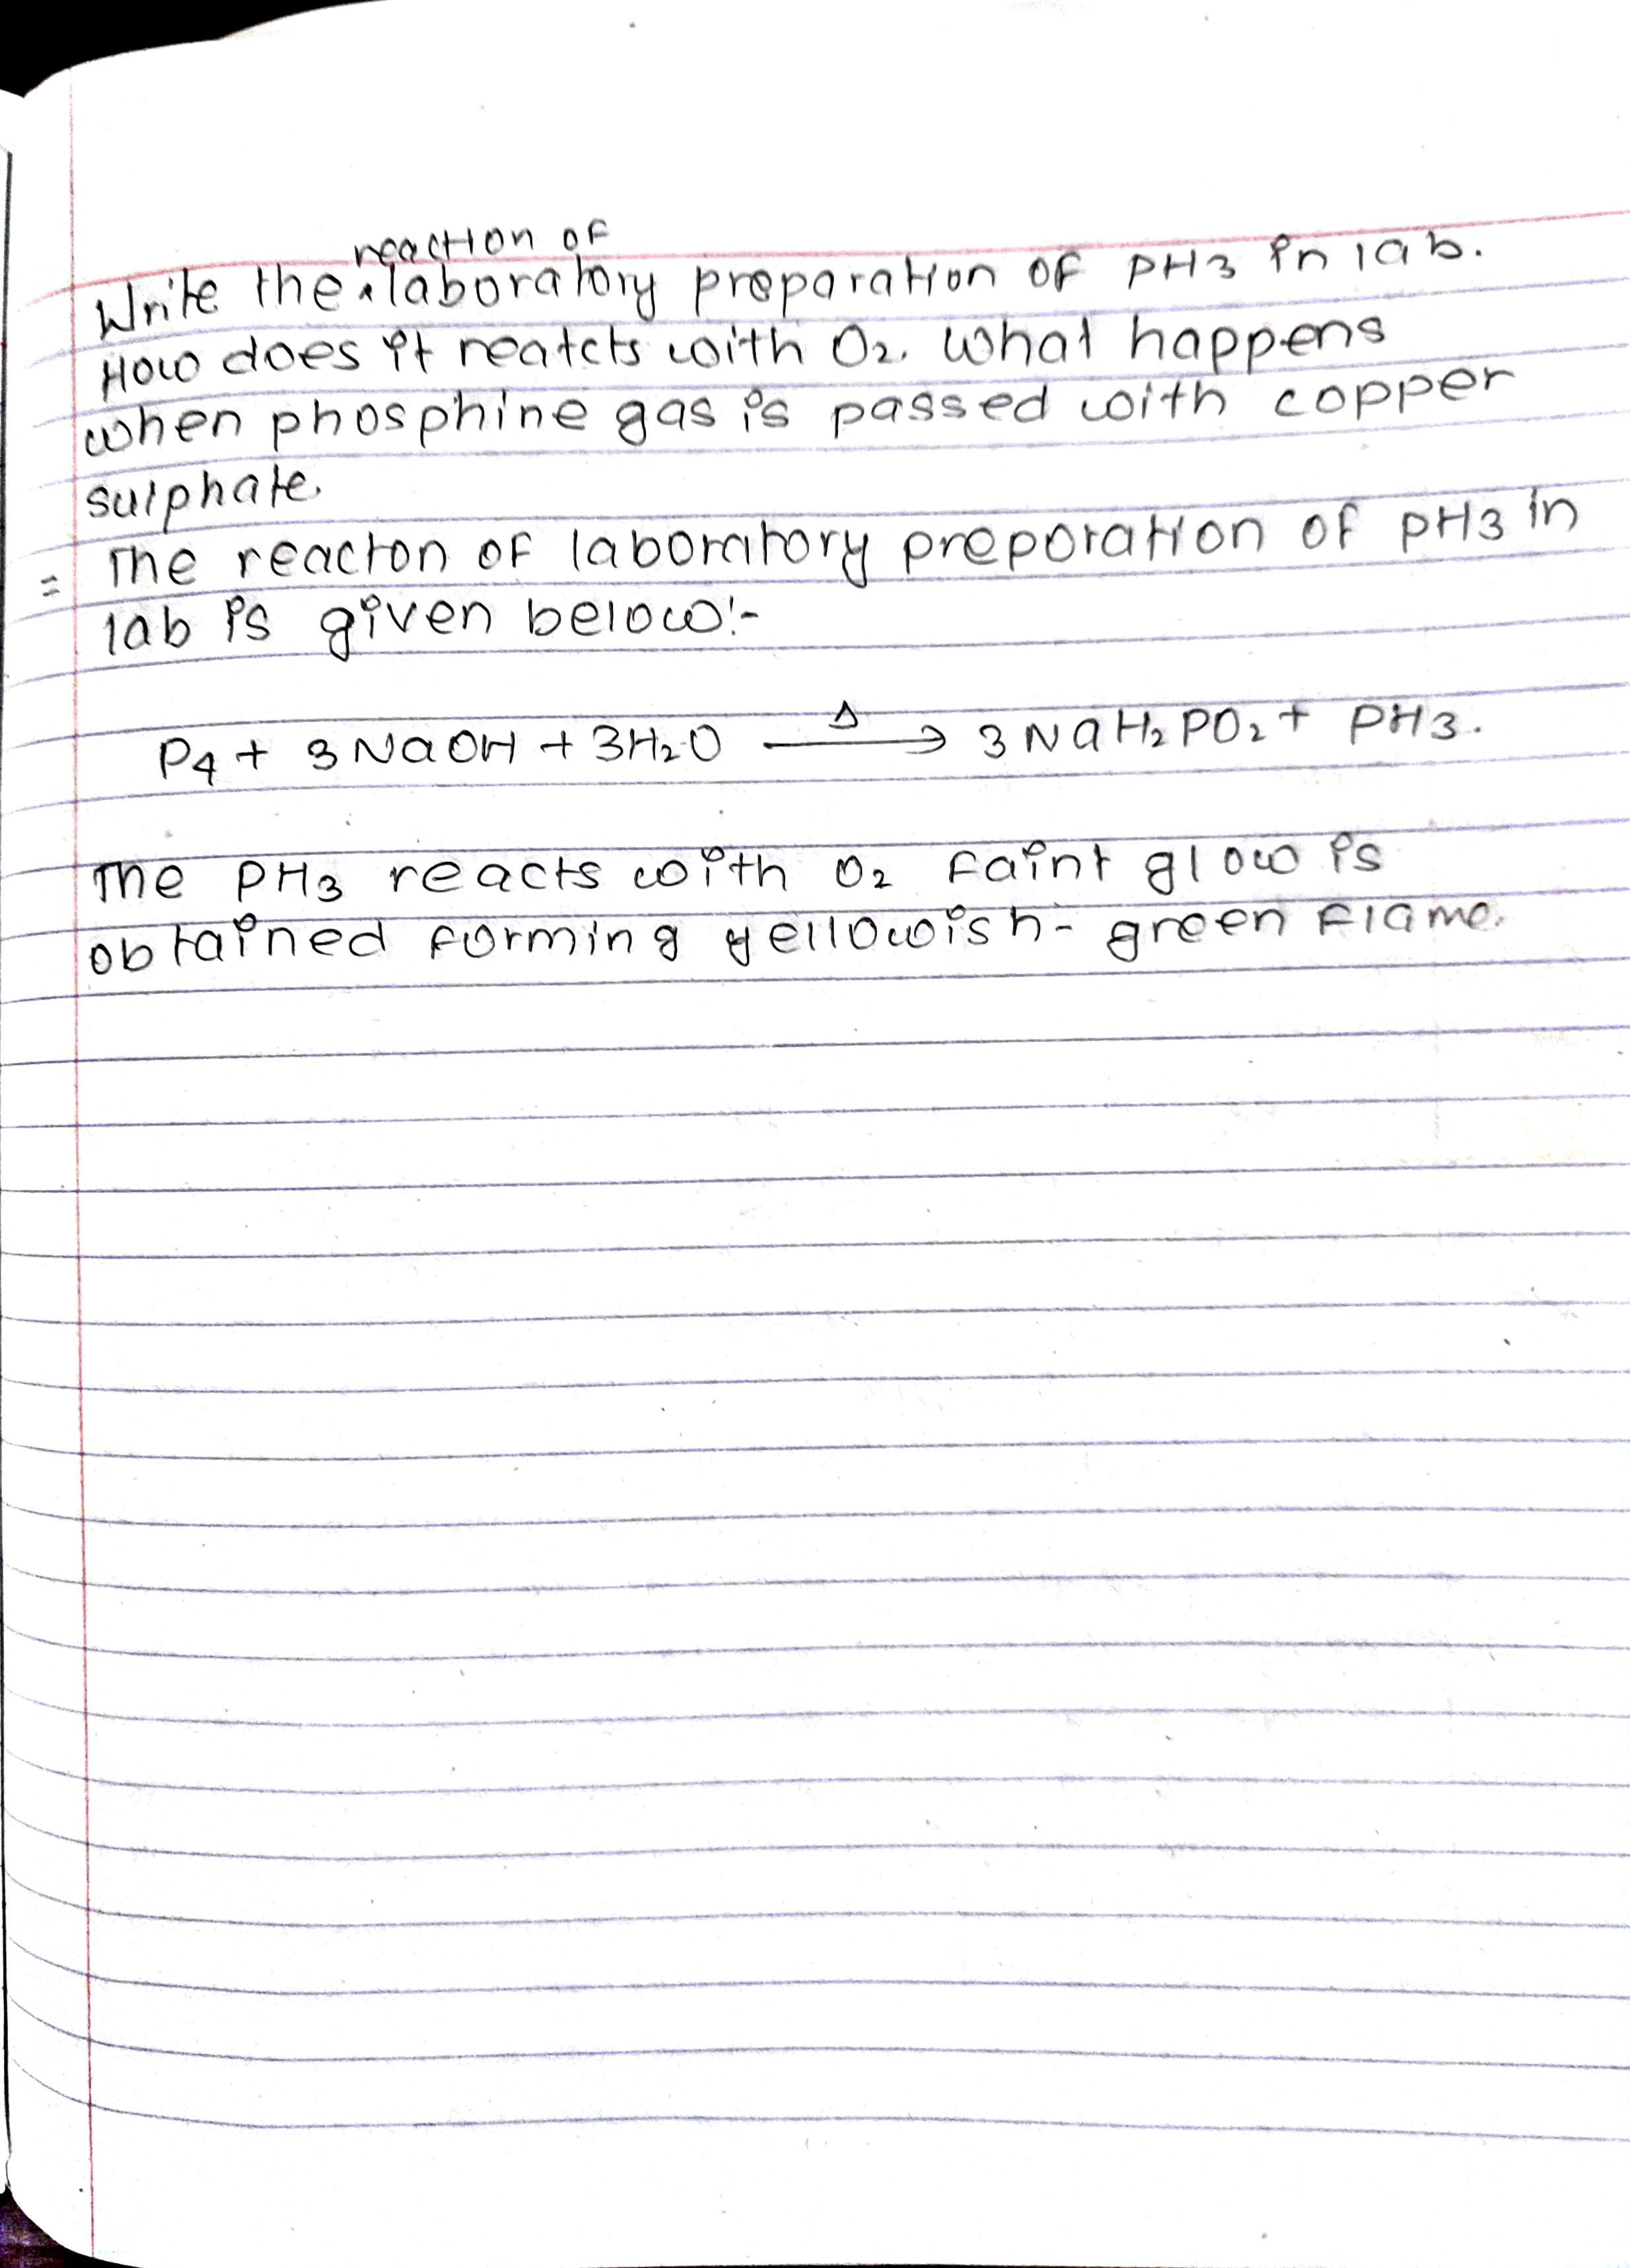 reaction of
Write the laboratory preparation of PH3 in lab.
How does it reatcts with O2. What happens
when phosphine gas is passed with copper
sulphate.
= The reacton of laboratory preporation of PH3 in
lab is given below:-
P4 + 3 NaOH + 3H2O —Δ→ 3 NaH2PO2 + PH3.
The PH3 reacts with O2 faint glow is
obtained forming yellowish- green flame.